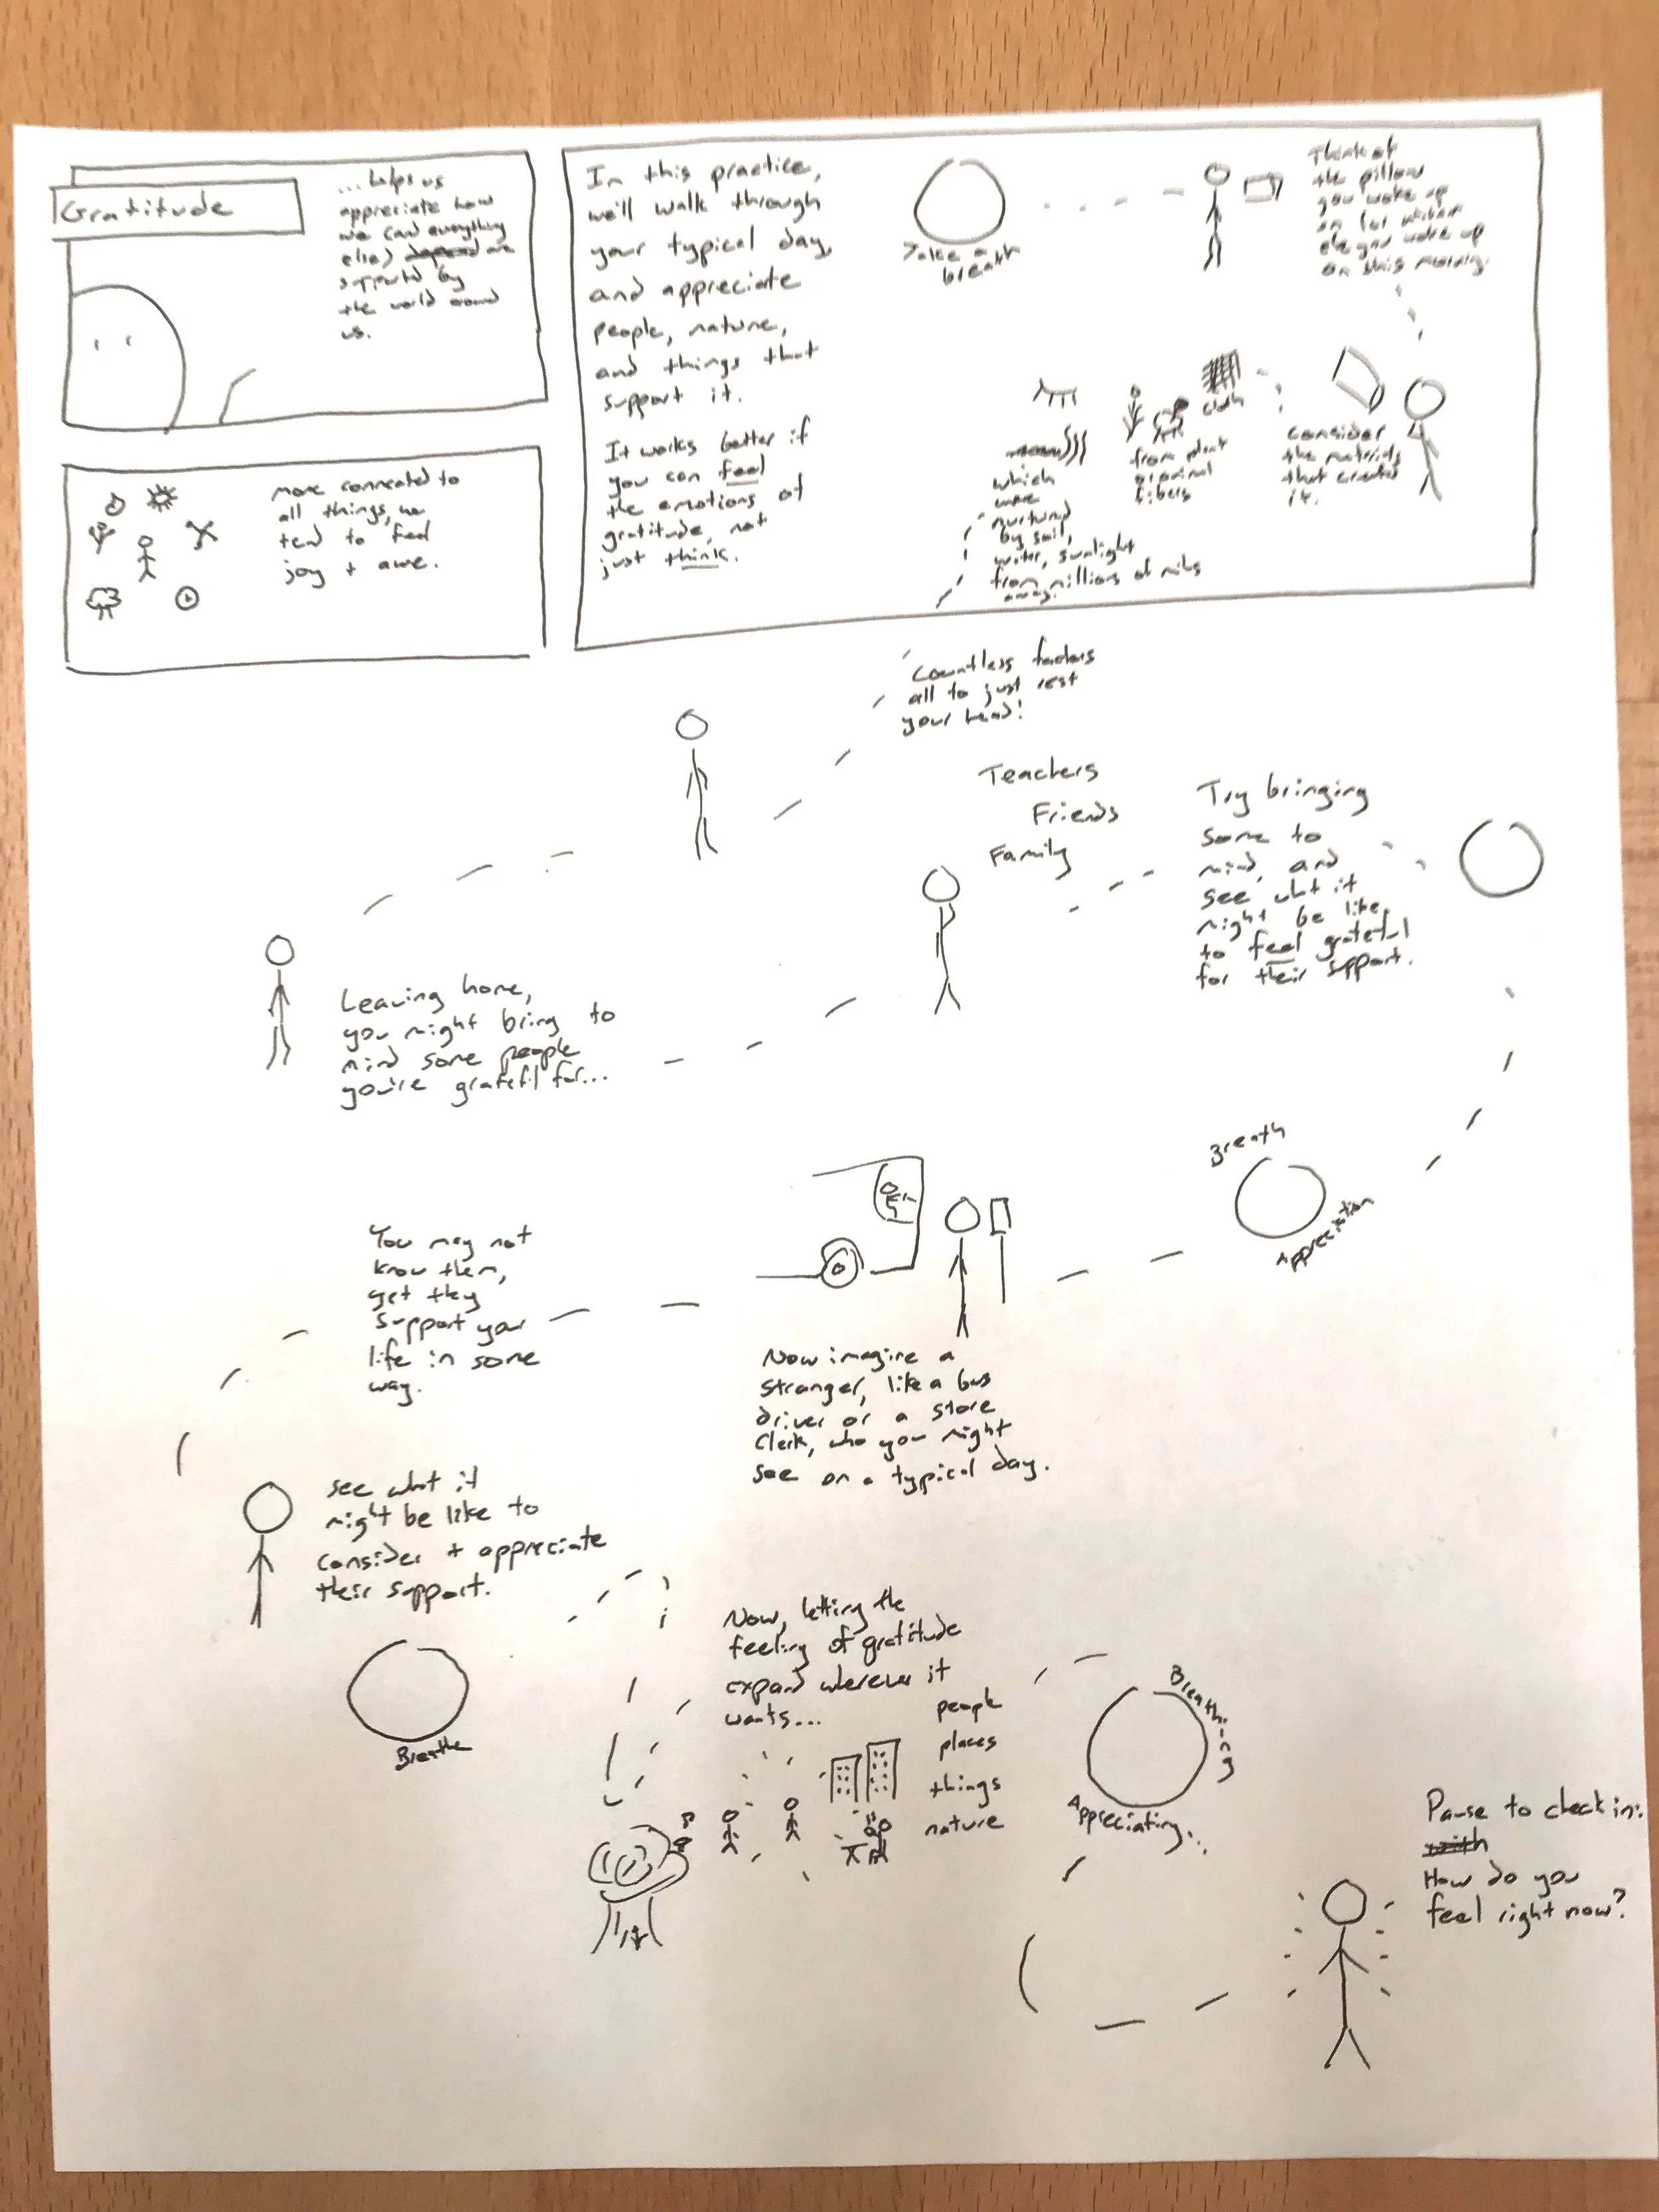 Gratitude
...helps us
appreciate how
we (and everything
else) depend are
supported by
the world around
us.
more connected to
all things, we
tend to feel
joy + awe.
In this practice,
we'll walk through
your typical day,
and appreciate
people, nature,
and things that
support it.
It works better if
you can feel
the emotions of
gratitude, not
just think.
Take a
breath
Think of
the pillow
you woke up
on (or whatever
else you woke up
on this morning.
Consider
the materials
that created
it.
cloth
from plant
or animal
fibers
which
were
nurtured
by soil,
water, sunlight
from millions of miles
away.
Countless factors
all to just rest
your head!
Leaving home,
you might bring to
mind some people
you're grateful for...
Teachers
Friends
Family
Try bringing
some to
mind, and
see what it
might be like
to feel grateful
for their support.
Breath
Appreciation
Now imagine a
stranger, like a bus
driver or a store
clerk, who you might
see on a typical day.
You may not
know them,
yet they
support your
life in some
way.
see what it
might be like to
consider + appreciate
their support.
Breathe
Now, letting the
feeling of gratitude
expand wherever it
wants...
people
places
things
nature
Breathing
Appreciating...
Pause to check in:
with
How do you
feel right now?